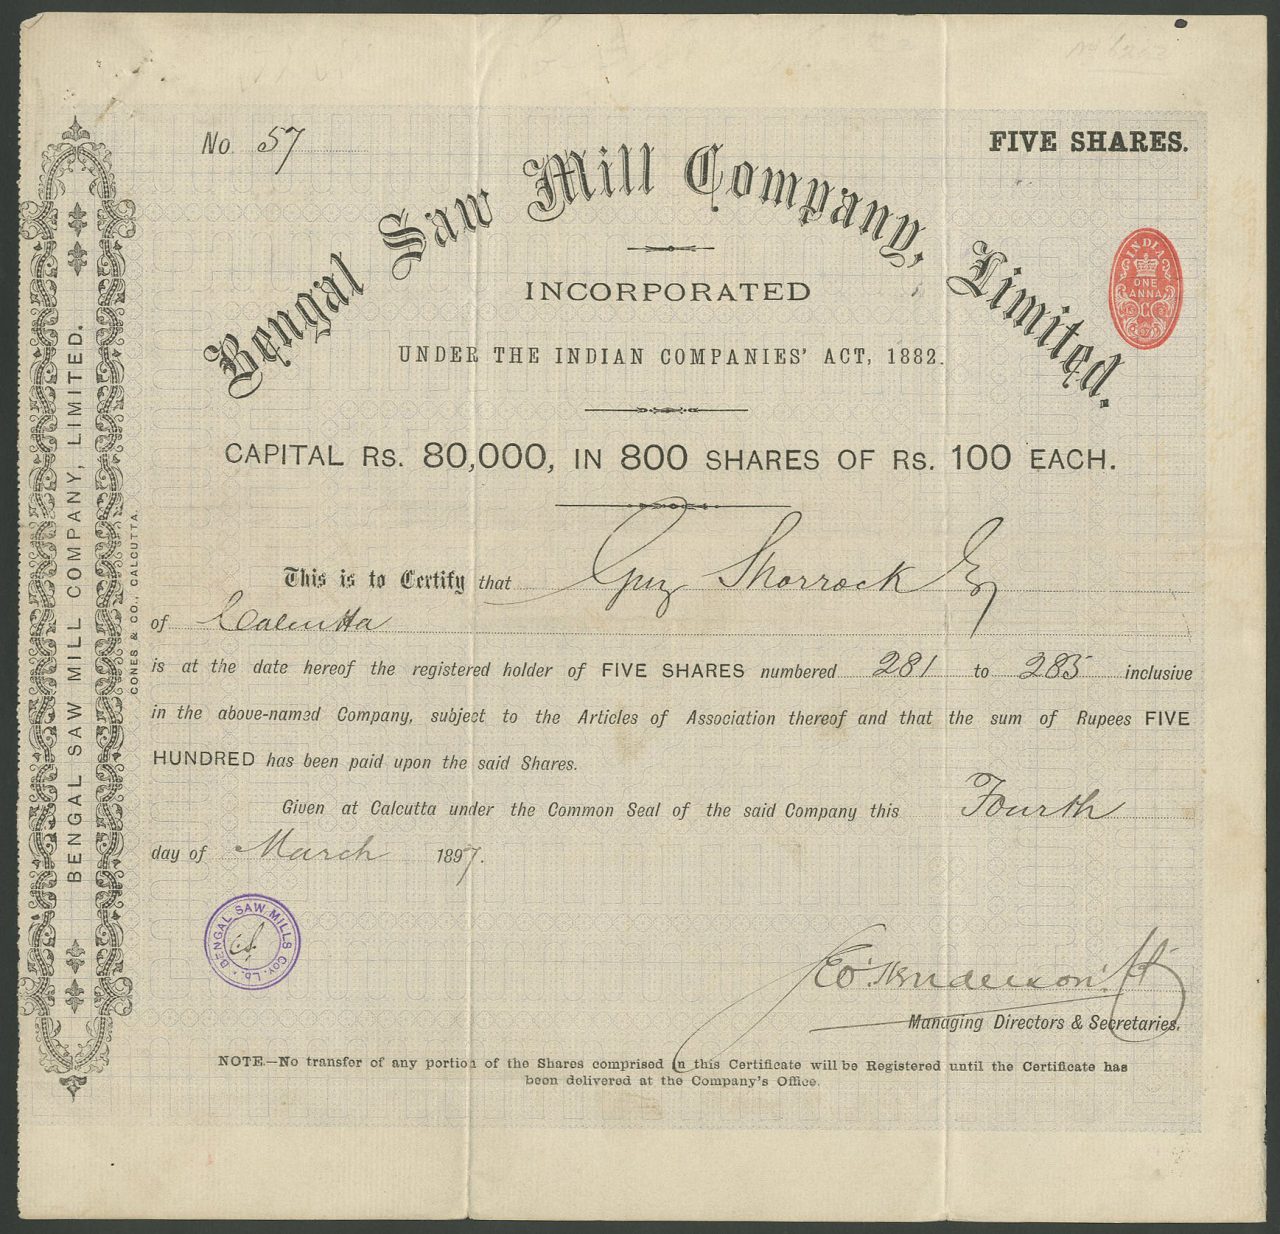 No 57
FIVE SHARES.
Bengal Saw Mill Company, Limited.
INDIA
ONE
ANNA
INCORPORATED
UNDER THE INDIAN COMPANIES' ACT, 1882.
CAPITAL RS. 80,000, IN 800 SHARES OF RS. 100 EACH.
This is to Certify that Guy Shorrock Esq
of Calcutta
is at the date hereof the registered holder of FIVE SHARES numbered 281 to 285 inclusive
in the above-named Company, subject to the Articles of Association thereof and that the sum of Rupees FIVE
HUNDRED has been paid upon the said Shares.
Given at Calcutta under the Common Seal of the said Company this Fourth
day of March 1897.
BENGAL SAW MILLS COY. LD.
Managing Directors & Secretaries.
NOTE.—No transfer of any portion of the Shares comprised in this Certificate will be Registered until the Certificate has
been delivered at the Company's Office.
BENGAL SAW MILL COMPANY, LIMITED.
CONES & CO., CALCUTTA.